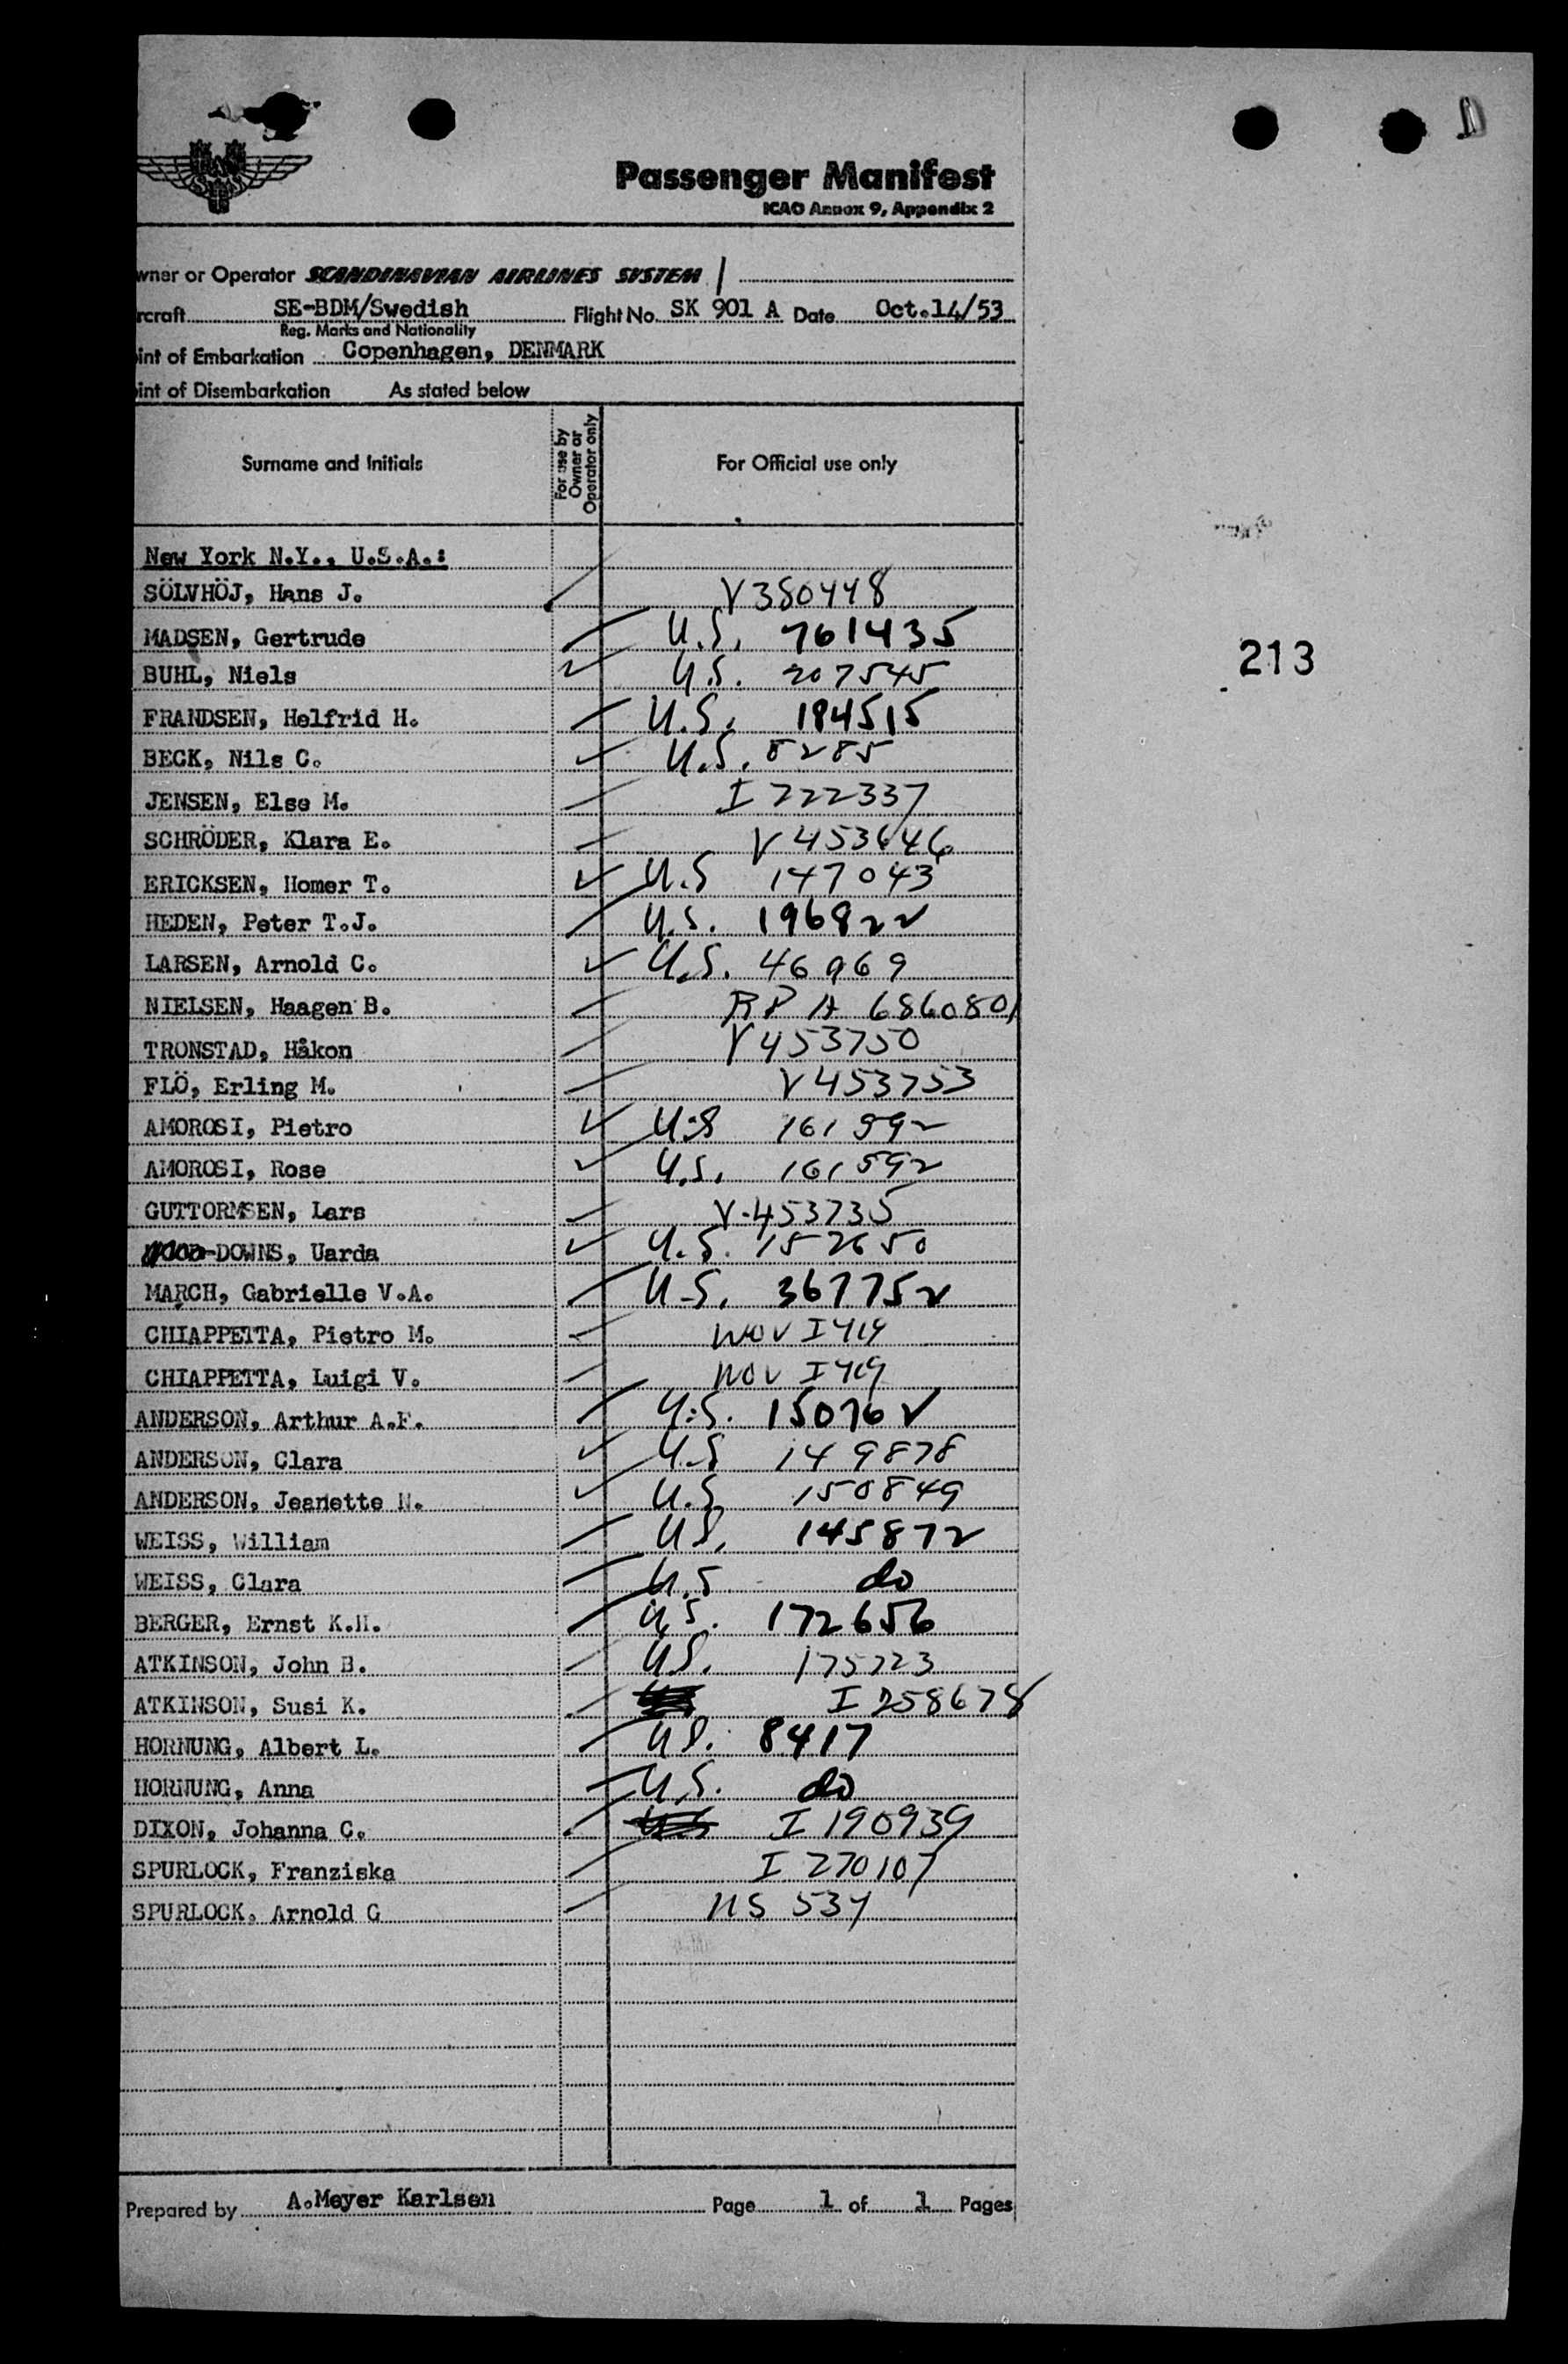 Passenger Manifest
ICAO Annex 9, Appendix 2
wner or Operator SCANDINAVIAN AIRLINES SYSTEM
rcraft SE-BDM/Swedish Flight No. SK 901 A Date Oct.14/53
Reg. Marks and Nationality
int of Embarkation Copenhagen, DENMARK
int of Disembarkation As stated below
Surname and Initials For use by Owner or Operator only For Official use only
New York N.Y., U.S.A.:
SÖLVHÖJ, Hans J. V 380448
MADSEN, Gertrude U.S. 761435
213
BUHL, Niels U.S. 207545
FRANDSEN, Helfrid H. U.S. 184515
BECK, Nils C. U.S. 8285
JENSEN, Else M. I 222337
SCHRÖDER, Klara E. V 453646
ERICKSEN, Homer T. U.S 147043
HEDEN, Peter T.J. U.S. 196822
LARSEN, Arnold C. U.S. 46969
NIELSEN, Haagen B. RP A 6860801
TRONSTAD, Håkon V 453750
FLÖ, Erling M. V 453753
AMOROSI, Pietro U.S 161592
AMOROSI, Rose U.S. 161592
GUTTORMSEN, Lars V-453735
DOWNS, Uarda U.S. 152650
MARCH, Gabrielle V.A. U.S. 367752
CHIAPPETTA, Pietro M. NOV I419
CHIAPPETTA, Luigi V. NOV I419
ANDERSON, Arthur A.F. U.S. 150762
ANDERSON, Clara U.S 149878
ANDERSON, Jeanette N. U.S 150849
WEISS, William U.S. 145872
WEISS, Clara U.S do
BERGER, Ernst K.H. U.S. 172656
ATKINSON, John B. U.S. 175723
ATKINSON, Susi K. I 258678
HORNUNG, Albert L. U.S. 8417
HORNUNG, Anna U.S. do
DIXON, Johanna C. I 190939
SPURLOCK, Franziska I 270107
SPURLOCK, Arnold G US 534
Prepared by A.Meyer Karlsen Page 1 of 1 Pages